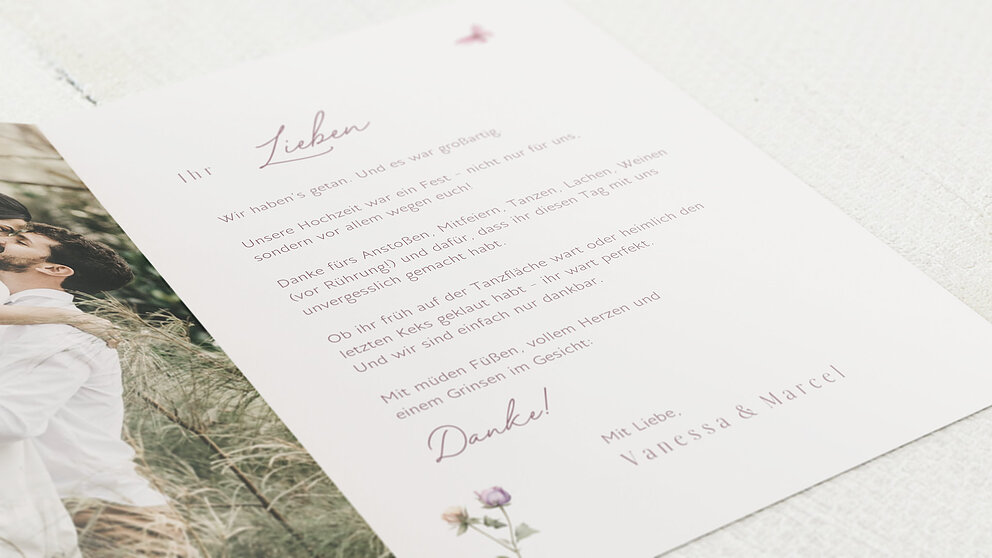 Ihr Lieben
Wir haben's getan. Und es war großartig.
Unsere Hochzeit war ein Fest – nicht nur für uns,
sondern vor allem wegen euch!
Danke fürs Anstoßen, Mitfeiern, Tanzen, Lachen, Weinen
(vor Rührung!) und dafür, dass ihr diesen Tag mit uns
unvergesslich gemacht habt.
Ob ihr früh auf der Tanzfläche wart oder heimlich den
letzten Keks geklaut habt – ihr wart perfekt.
Und wir sind einfach nur dankbar.
Mit müden Füßen, vollem Herzen und
einem Grinsen im Gesicht:
Danke!
Mit Liebe,
Vanessa & Marcel